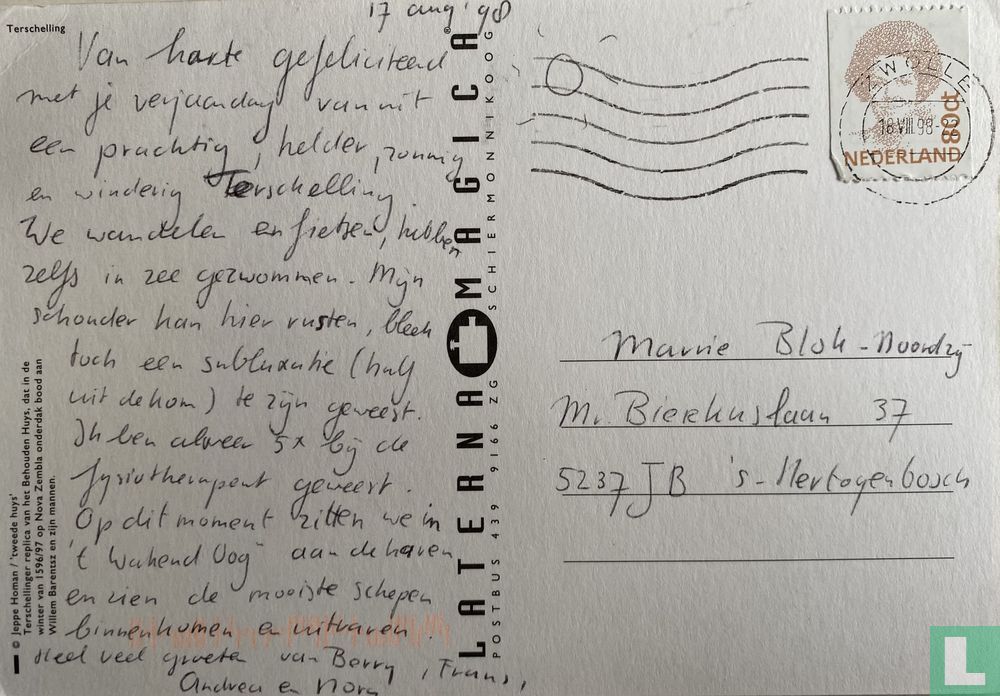 Terschelling
17 aug '98
Van harte gefeliciteerd
met je verjaardag vanuit
een prachtig, helder, zonnig
en winderig Terschelling.
We wandelen en fietsen, hebben
zelfs in zee gezwommen. Mijn
schouder kan hier rusten, bleek
toch een subluxatie (half
uit de kom) te zijn geweest.
Ik ben alweer 5x bij de
fysiotherapeut geweest.
Op dit moment zitten we in
't Wakend Oog aan de haven
en zien de mooiste schepen
binnenkomen en uitvaren.
Heel veel groeten van Berry, Frans,
Andrea en Nora
© Jeppe Homan / 'tweede huys'
Terschellinger replica van het Behouden Huys, dat in de
winter van 1596/97 op Nova Zembla onderdak bood aan
Willem Barentsz en zijn mannen.
LATERNA MAGICA®
POSTBUS 439 9166 ZG SCHIERMONNIKOOG
ZWOLLE
18.VIII.98
80ct
NEDERLAND
Marrie Blok-Noordzij
Mr. Bierkenslaan 37
5237 JB 's-Hertogenbosch
L